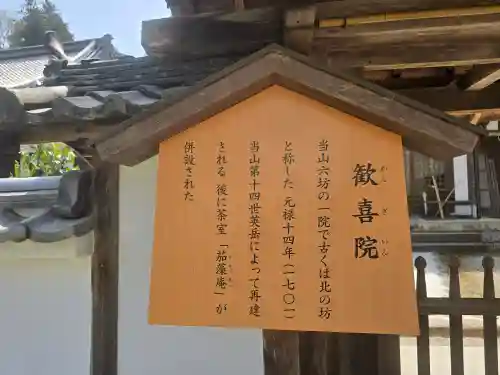 歓喜院
かんぎいん
当山六坊の一院で古くは北の坊
と称した 元禄十四年(一七〇一)
当山第十四世英岳によって再建
される 後に茶室「茄藻庵」が
併設された